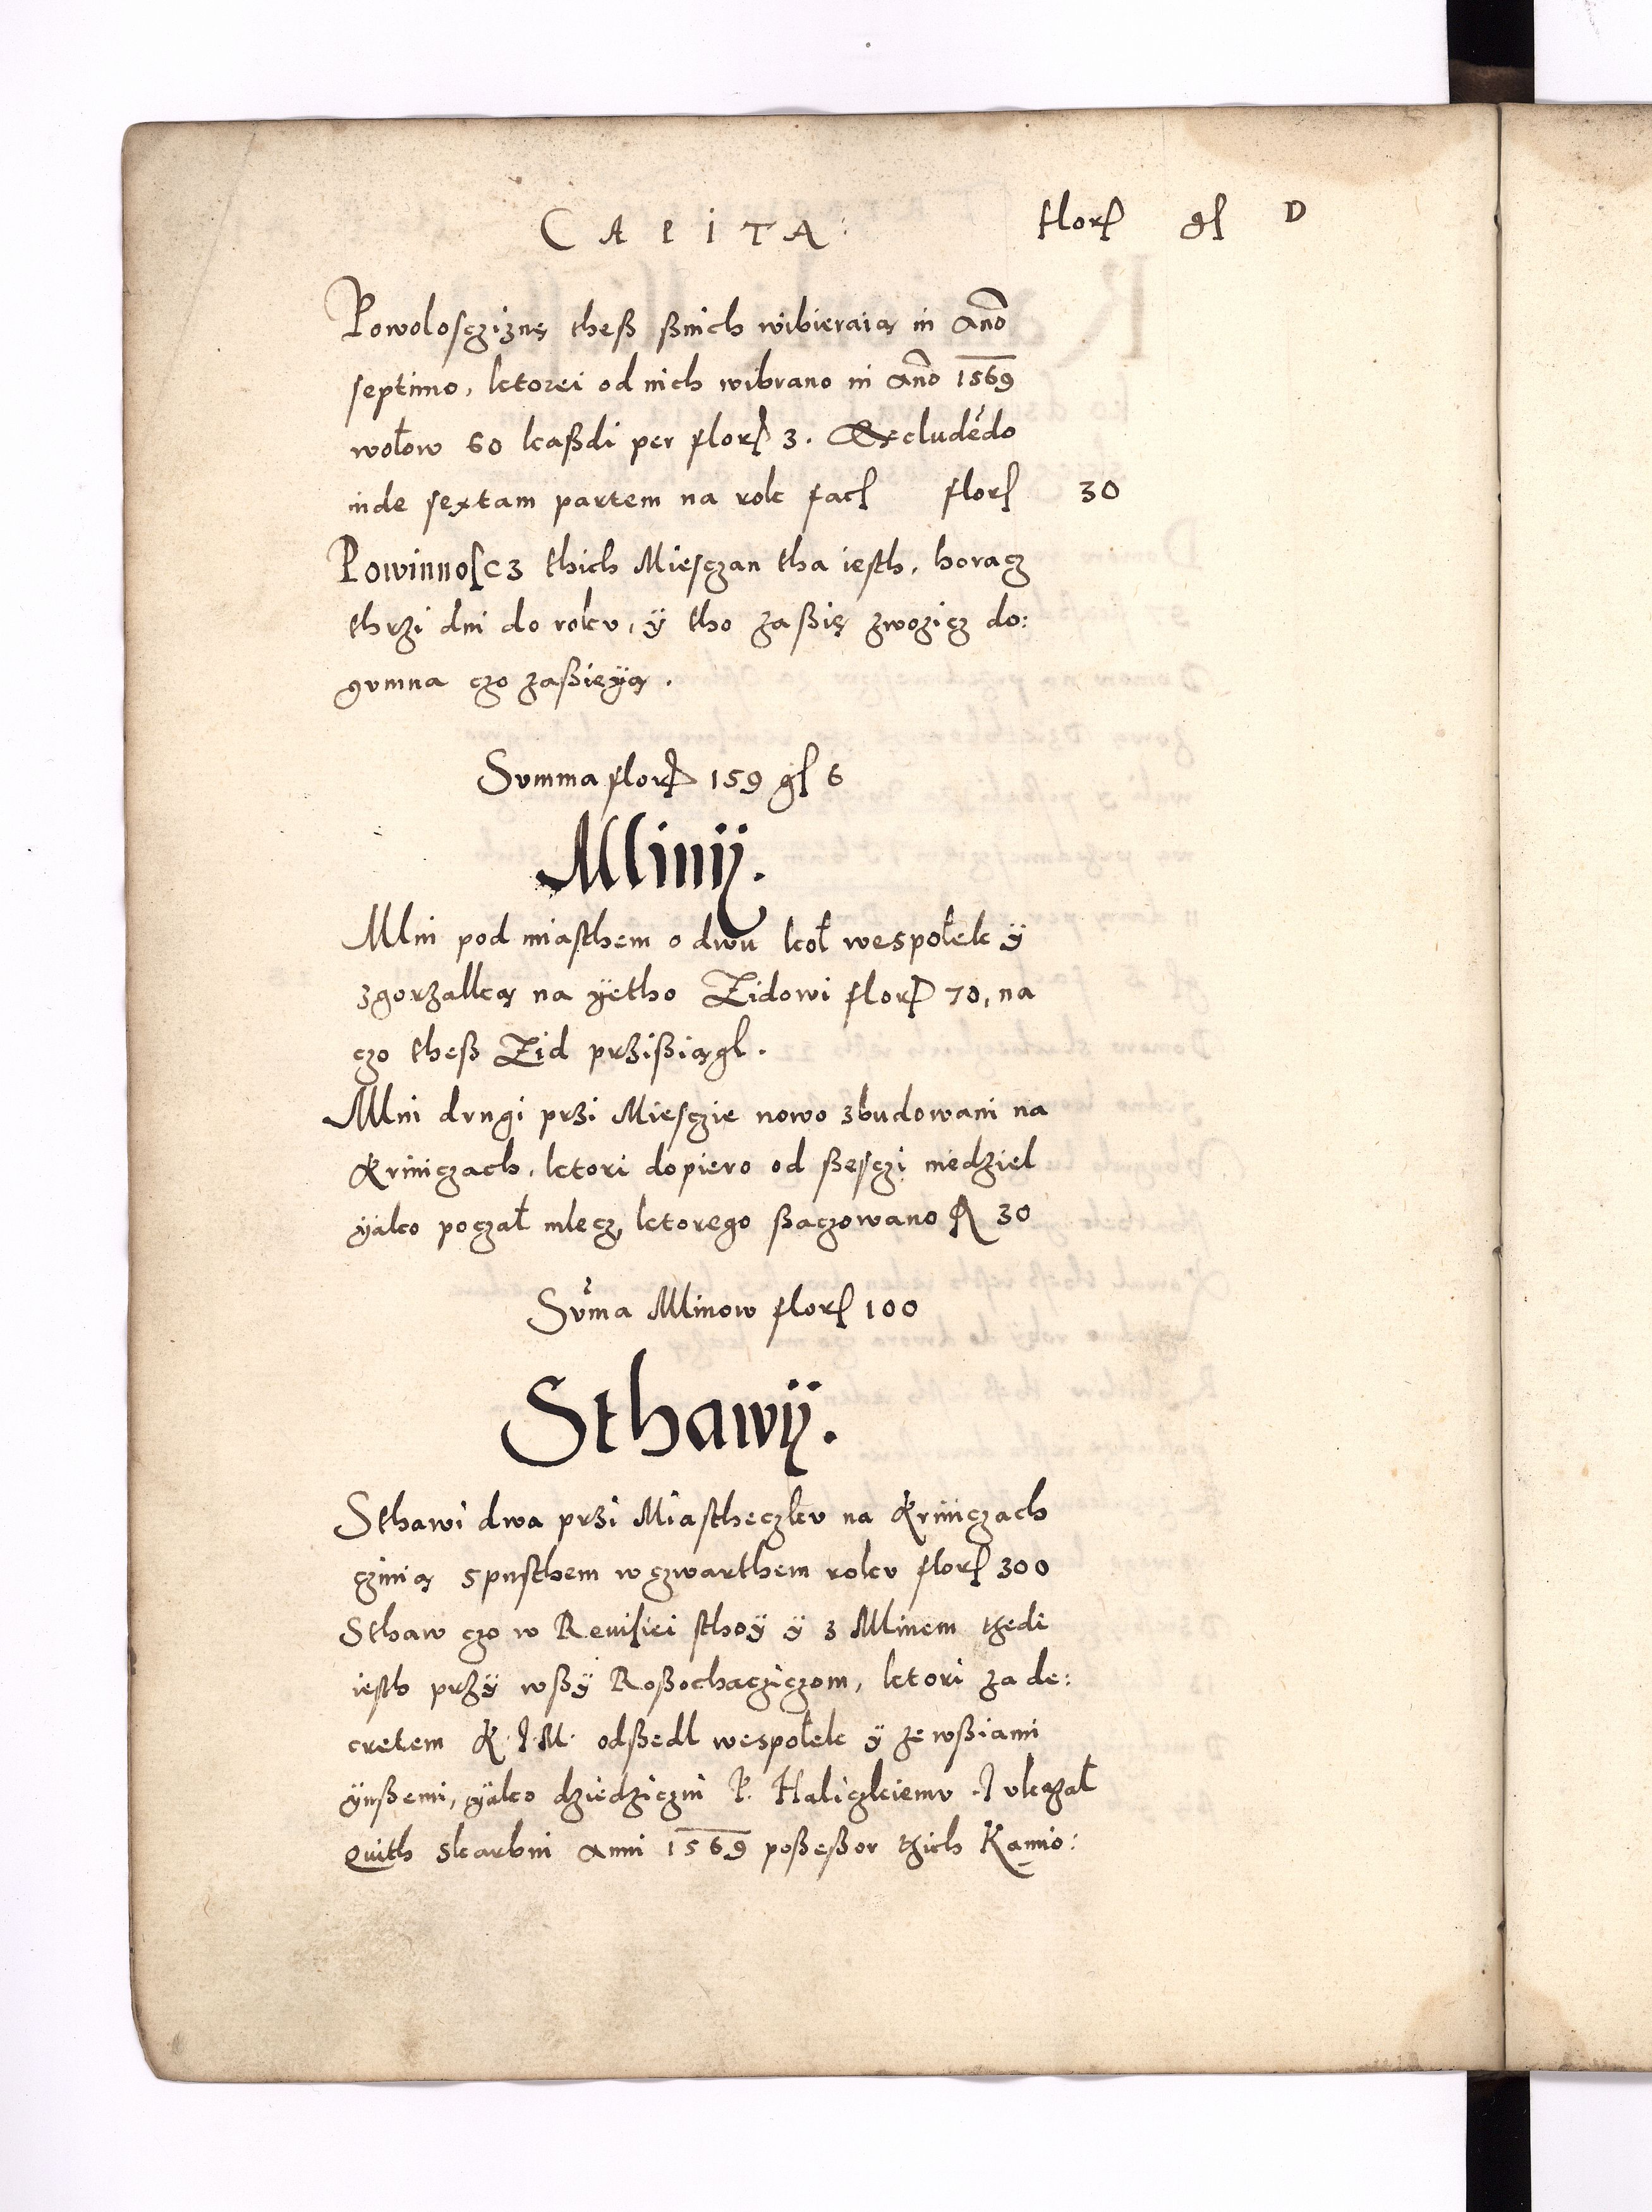 CAPITA: florſ gſ D
Powoloſcziznę theß ßnich wibieraią in Anō
ſeptimo, ktorei od nich wibrano in Anō 1569
wołow 60 kaßdi per florſ 3. Excludēdo
inde ſextam partem na rok facſ florſ 30
Powinnoſcz thich Mieſczan tha ieſth, horacz
thrzi dni do rokv, ÿ tho zaßię zwozicz do:
gvmna czo zaßieÿą.
Svmma florſ 159 gſ 6
Mlinÿ.
Mlin pod miaſthem o dwu koł weſpołek ÿ
zgorzałką na ÿetho Zidowi florſ 70, na
czo theß Zid przißiągl.
Mlin drugi przi Mieſczie nowo zbudowani na
Kriniczach, ktori dopiero od ßeſczi niedziel
ÿako poczał mlecz, ktorego ßaczowano fl 30
Sūma Mlinow florſ 100
Sthawÿ.
Sthawi dwa przi Miaſtheczkv na Kriniczach
czinią spuſthem w czwarthem rokv florſ 300
Sthaw czo w Reuiſiei ſthoÿ ÿ z Mlinem thedi
ieſth przÿ wßÿ Roßochacziczom, ktori za de:
cretem K. J. M. odßedl weſpołek ÿ ze wßiami
ÿnßemi, ÿako dziedziczni P. Haliczkiemv. J vkazał
Quith skarbni Anni 1569 poßeßor thich Kamio: